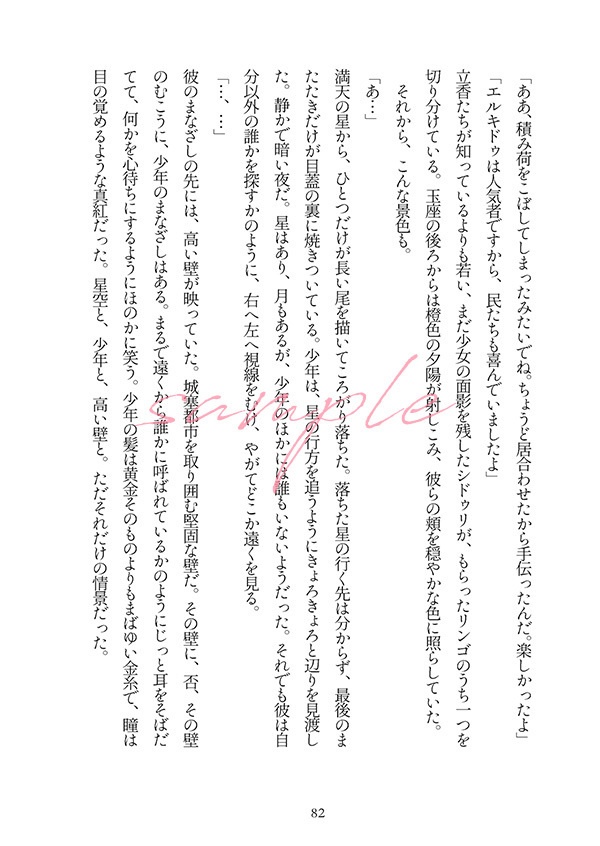 「ああ、積み荷をこぼしてしまったみたいでね。ちょうど居合わせたから手伝ったんだ。楽しかったよ」
「エルキドゥは人気者ですから、民たちも喜んでいましたよ」
立香たちが知っているよりも若い、まだ少女の面影を残したシドゥリが、もらったリンゴのうち一つを
切り分けている。玉座の後ろからは橙色の夕陽が射しこみ、彼らの頬を穏やかな色に照らしていた。
それから、こんな景色も。
「あ…」
満天の星から、ひとつだけが長い尾を描いてころがり落ちた。落ちた星の行く先は分からず、最後のま
たたきだけが目蓋の裏に焼きついている。少年は、星の行方を追うようにきょろきょろと辺りを見渡し
た。静かで暗い夜だ。星はあり、月もあるが、少年のほかには誰もいないようだった。それでも彼は自
分以外の誰かを探すかのように、右へ左へ視線をむけ、やがてどこか遠くを見る。
「…、…」
彼のまなざしの先には、高い壁が映っていた。城塞都市を取り囲む堅固な壁だ。その壁に、否、その壁
のむこうに、少年のまなざしはある。まるで遠くから誰かに呼ばれているかのようにじっと耳をそばだ
てて、何かを心待ちにするようにほのかに笑う。少年の髪は黄金そのものよりもまばゆい金糸で、瞳は
目の覚めるような真紅だった。星空と、少年と、高い壁と。ただそれだけの情景だった。
sample
82